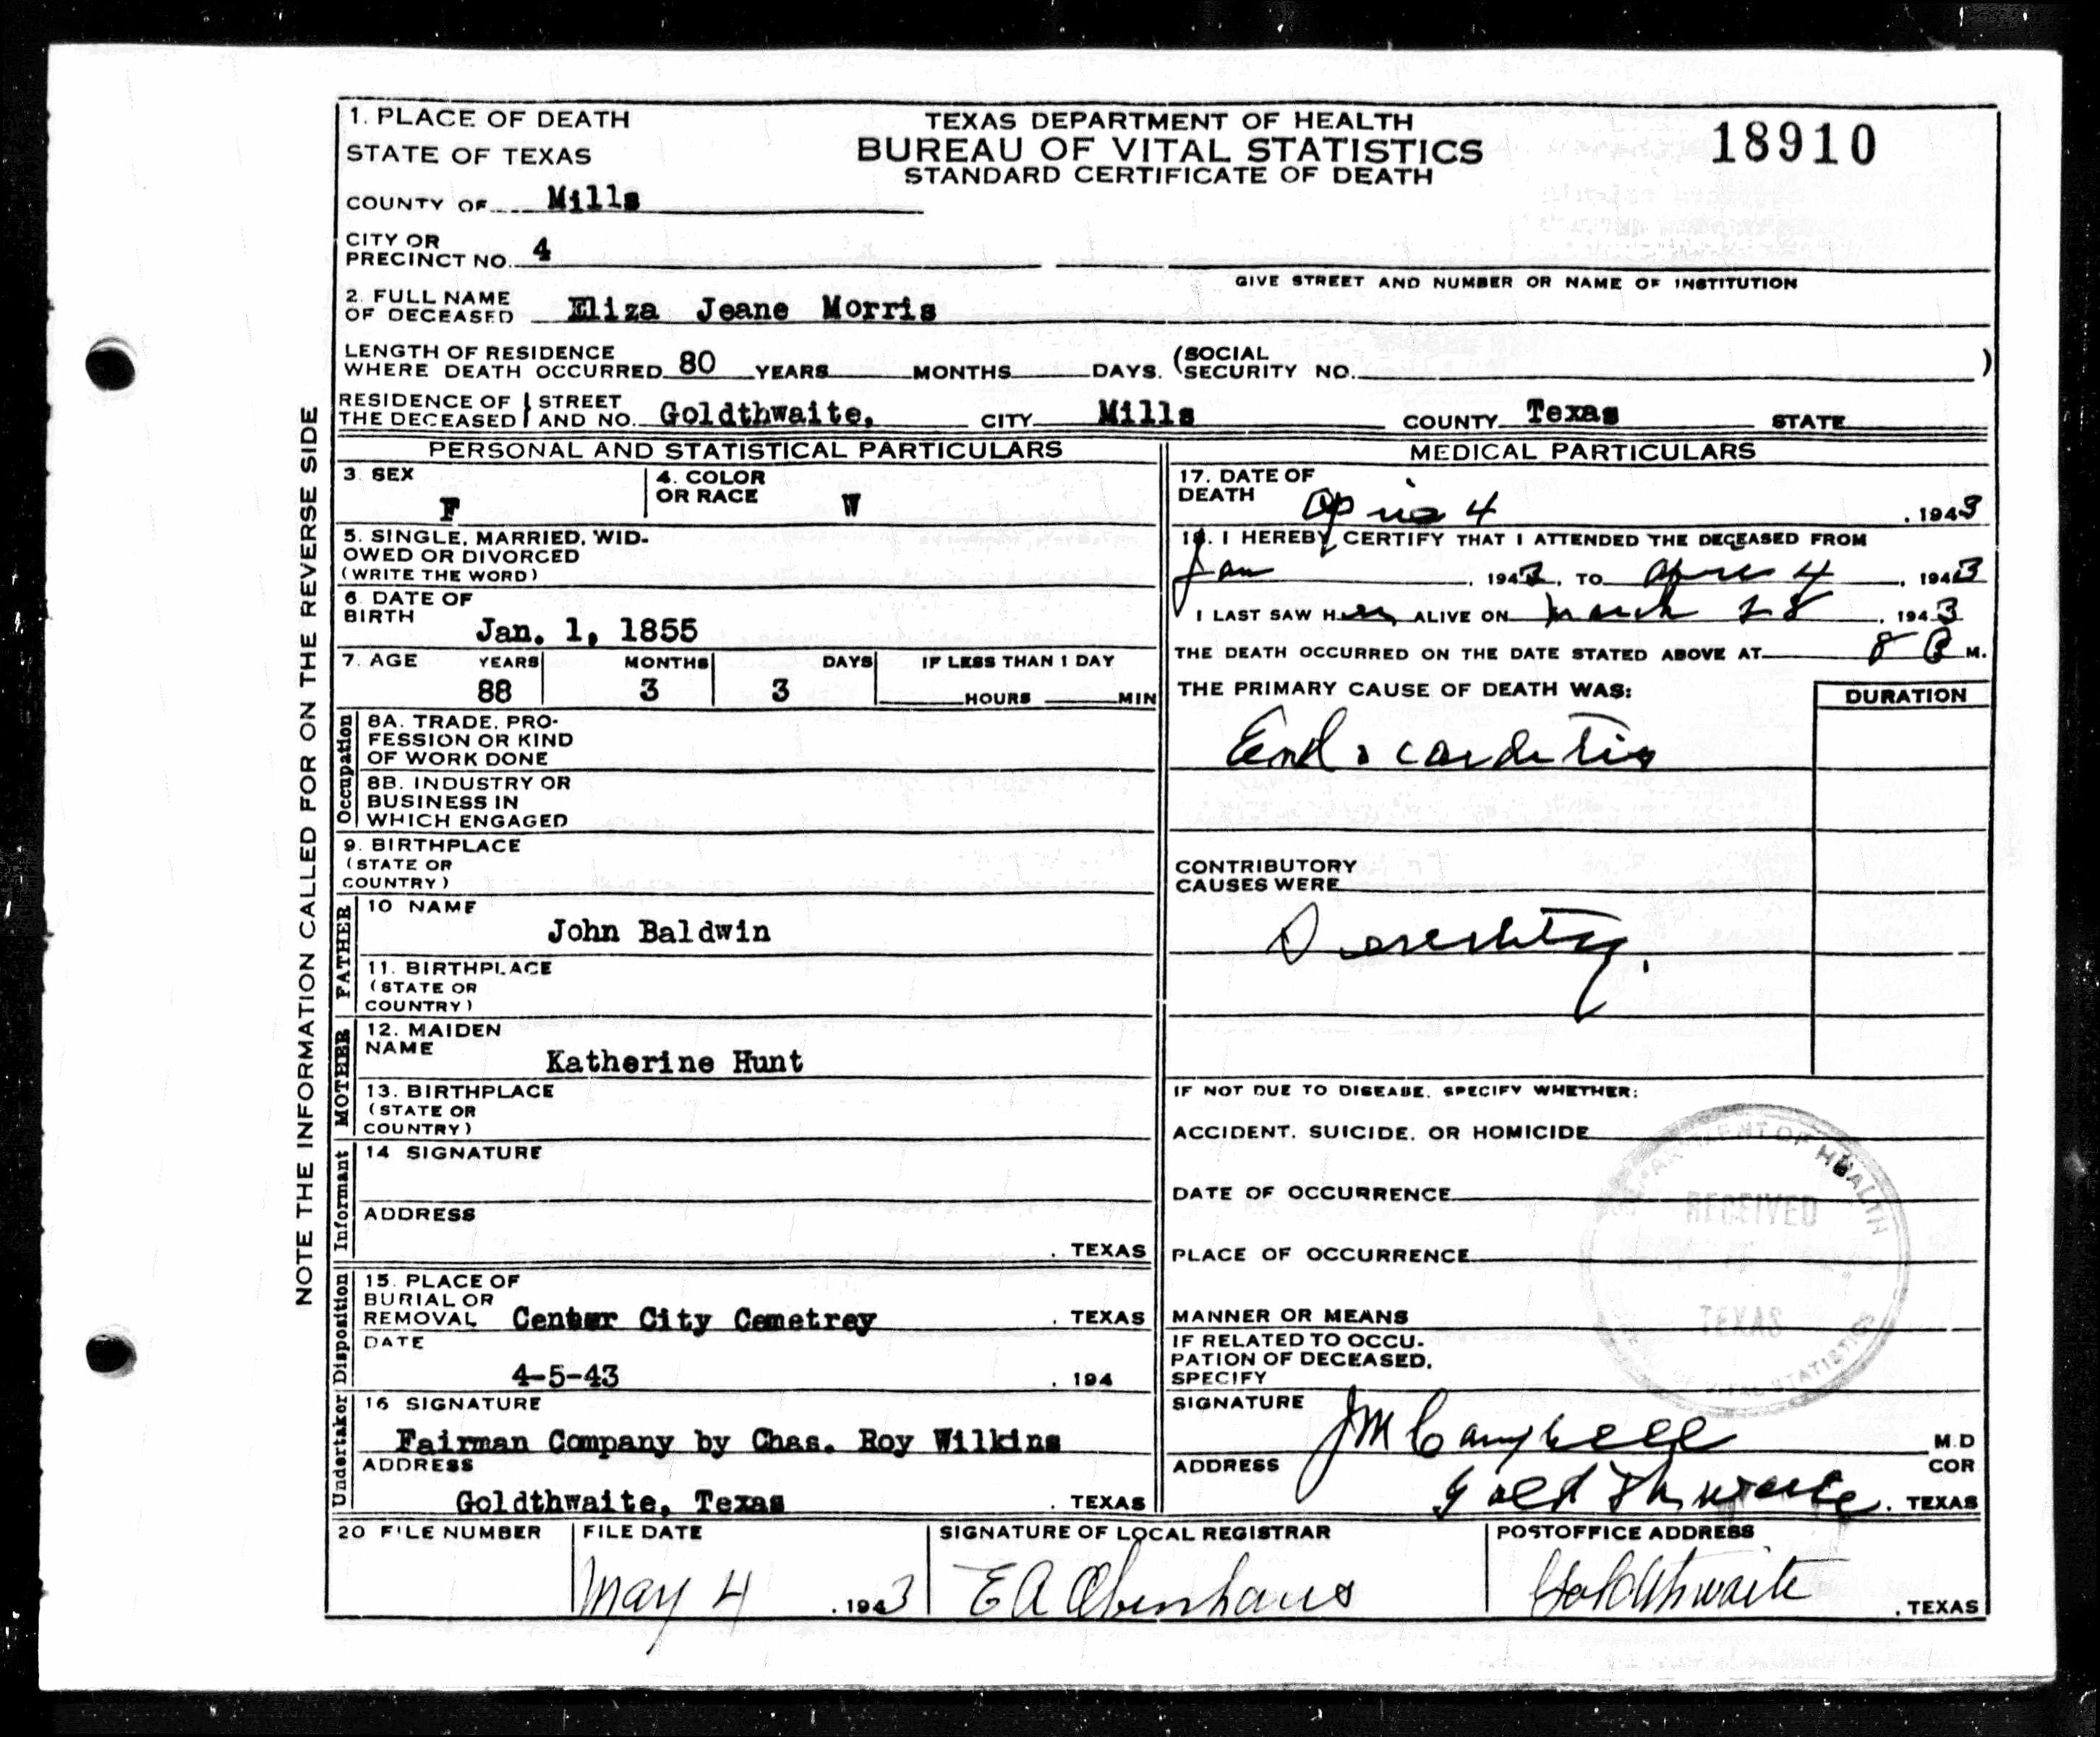 1. PLACE OF DEATH
STATE OF TEXAS
TEXAS DEPARTMENT OF HEALTH
BUREAU OF VITAL STATISTICS
STANDARD CERTIFICATE OF DEATH
18910
COUNTY OF Mills
CITY OR PRECINCT NO. 4
GIVE STREET AND NUMBER OR NAME OF INSTITUTION
2. FULL NAME OF DECEASED Eliza Jeane Morris
LENGTH OF RESIDENCE WHERE DEATH OCCURRED 80 YEARS MONTHS DAYS. (SOCIAL SECURITY NO. )
RESIDENCE OF THE DECEASED STREET AND NO. Goldthwaite, CITY Mills COUNTY Texas STATE
NOTE THE INFORMATION CALLED FOR ON THE REVERSE SIDE
PERSONAL AND STATISTICAL PARTICULARS
3. SEX F
4. COLOR OR RACE W
5. SINGLE, MARRIED, WIDOWED OR DIVORCED
(WRITE THE WORD)
6. DATE OF BIRTH Jan. 1, 1855
7. AGE YEARS MONTHS DAYS IF LESS THAN 1 DAY
88 3 3 HOURS MIN
Occupation
8A. TRADE, PRO-
FESSION OR KIND
OF WORK DONE
8B. INDUSTRY OR
BUSINESS IN
WHICH ENGAGED
9. BIRTHPLACE
(STATE OR
COUNTRY)
FATHER
10 NAME
John Baldwin
11. BIRTHPLACE
(STATE OR
COUNTRY)
MOTHER
12. MAIDEN
NAME Katherine Hunt
13. BIRTHPLACE
(STATE OR
COUNTRY)
Informant
14 SIGNATURE
ADDRESS
. TEXAS
Disposition
15. PLACE OF
BURIAL OR
REMOVAL Center City Cemetrey . TEXAS
DATE
4-5-43 , 194
Undertaker
16 SIGNATURE
Fairman Company by Chas. Roy Wilkins
ADDRESS
Goldthwaite, Texas . TEXAS
MEDICAL PARTICULARS
17. DATE OF
DEATH April 4 , 1943
18. I HEREBY CERTIFY THAT I ATTENDED THE DECEASED FROM
Jan , 194 , TO April 4 , 1943
I LAST SAW Her ALIVE ON March 28 , 1943
THE DEATH OCCURRED ON THE DATE STATED ABOVE AT 8 M.
THE PRIMARY CAUSE OF DEATH WAS:
DURATION
Endocarditis
CONTRIBUTORY
CAUSES WERE
IF NOT DUE TO DISEASE, SPECIFY WHETHER:
ACCIDENT, SUICIDE, OR HOMICIDE
DATE OF OCCURRENCE
PLACE OF OCCURRENCE
MANNER OR MEANS
IF RELATED TO OCCU-
PATION OF DECEASED,
SPECIFY
DEPARTMENT OF HEALTH
RECEIVED
TEXAS
OF VITAL STATISTICS
SIGNATURE J M Campbell M.D
COR
ADDRESS Goldthwaite . TEXAS
20 FILE NUMBER
FILE DATE
May 4 , 1943
SIGNATURE OF LOCAL REGISTRAR
E A Obenhaus
POSTOFFICE ADDRESS
Goldthwaite . TEXAS